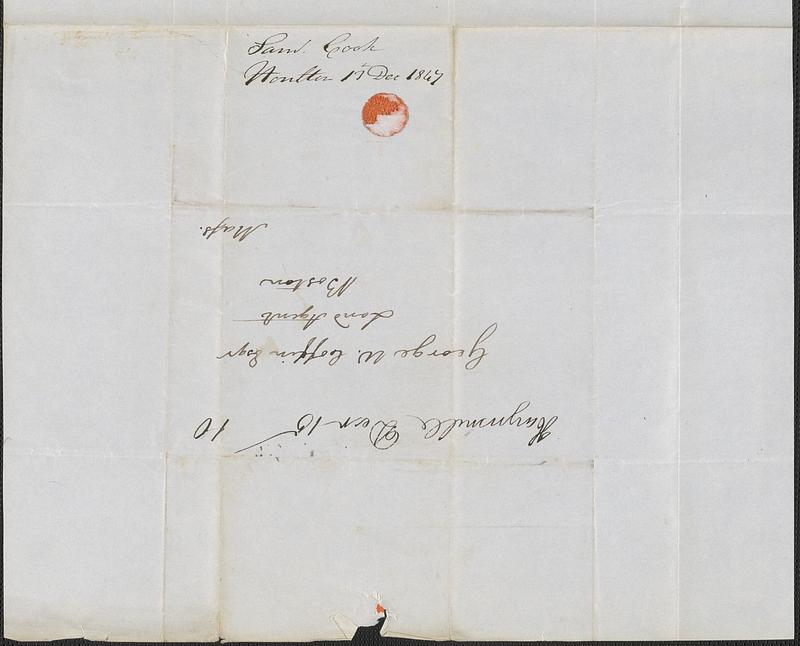 Saml. Cook
Houlton 17 Dec 1847
Haynsville Decr 18
10
George W. Coffin Esqr
Land Agent
Boston
Mass.